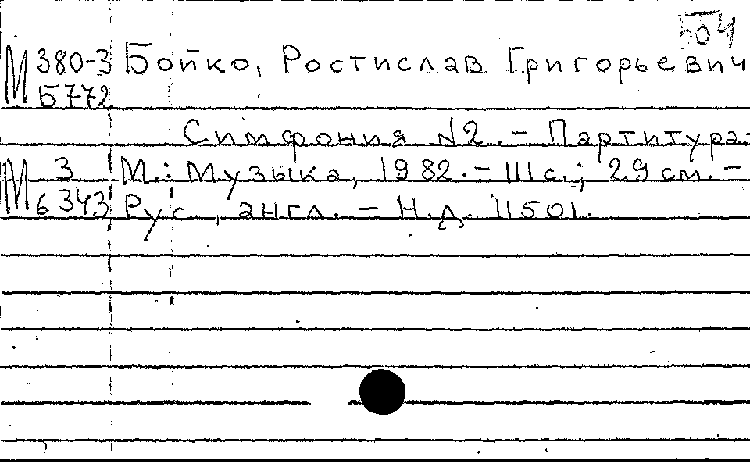 504
М 380-3 Бойко, Ростислав Григорьевич
Б772
Симфония №2. - Партитура.
М 3 М.: Музыка, 1982. - 111с.; 29см. -
6343 Рус., англ. - Н.д. 11501.